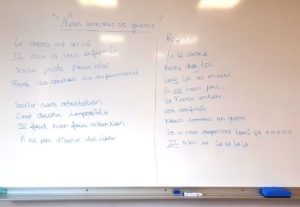 "Nous sommes en guerre"
Le corona est arrivé
Il nous a tous enfermés
Sortir juste pour aller
Faire les courses au supermarché
Sortir sans attestation
C'est devenu impossible
Il faut bien faire attention
A ne pas devenir
Refrain
Le corona
Reste chez toi
Lave toi les mains
Et ne sors pas
La France entière
est confinée
Nous sommes en guerre
Et
Il s'en va la la la la...